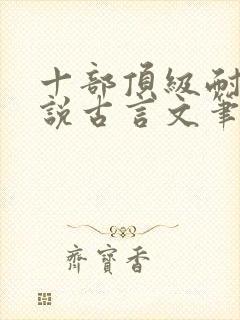 十部頂級耐
說古言文筆
齊寶香